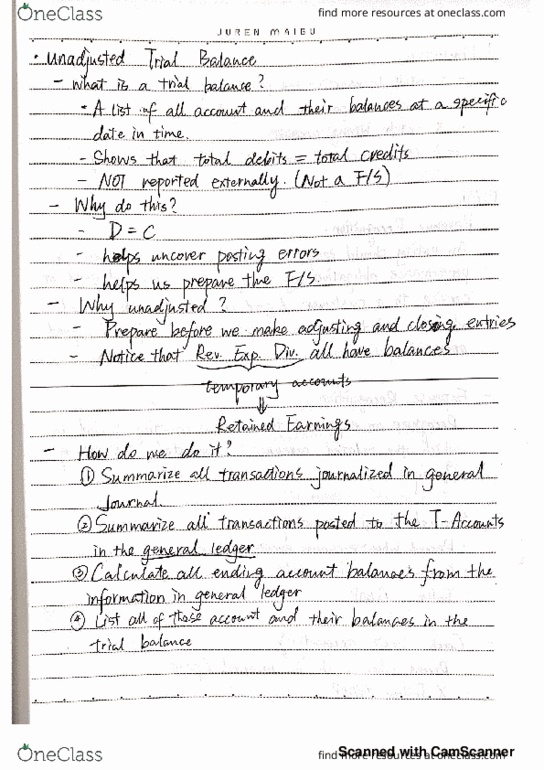 OneClass
find more resources at oneclass.com
JUREN MAIBU
• Unadjusted Trial Balance
- What is a trial balance?
• A list of all account and their balances at a specific
date in time.
- Shows that total debits = total credits
- NOT reported externally. (Not a F/S)
- Why do this?
- D = C
- helps uncover posting errors
- helps us prepare the F/S.
- Why unadjusted?
- Prepare before we make adjusting and closing entries
- Notice that Rev. Exp. Div. all have balances
temporary accounts
Retained Earnings
- How do we do it?
① Summarize all transactions journalized in general
Journal.
② Summarize all transactions posted to the T-Accounts
in the general ledger
③ Calculate all ending account balances from the
information in general ledger
④ List all of these account and their balances in the
trial balance
OneClass
find more resources at oneclass.com
Scanned with CamScanner